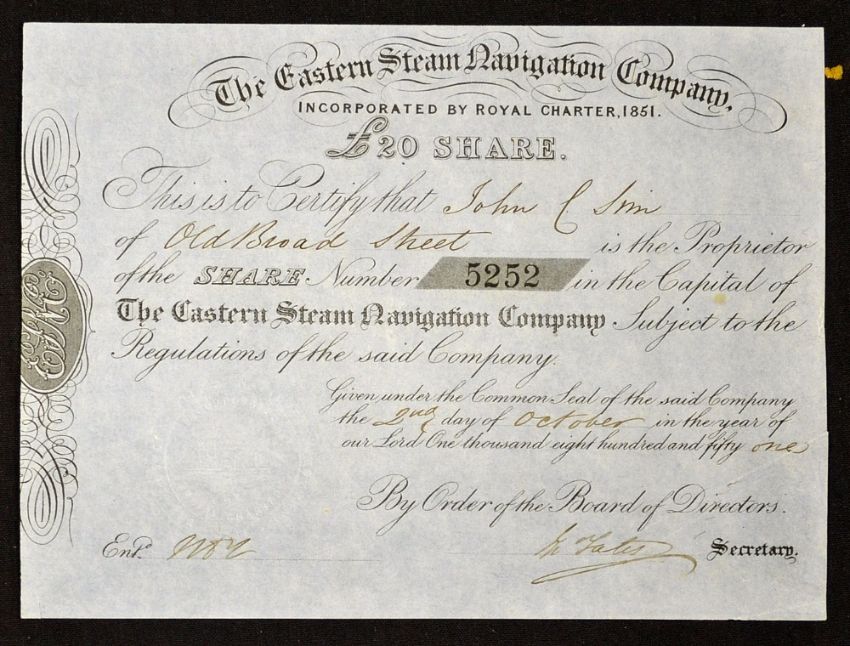 The Eastern Steam Navigation Company,
INCORPORATED BY ROYAL CHARTER, 1851.
£20 SHARE.
This is to Certify that John C Sim
of Old Broad Street is the Proprietor
of the SHARE Number 5252 in the Capital of
The Eastern Steam Navigation Company Subject to the
Regulations of the said Company.
Given under the Common Seal of the said Company
the 2nd day of October in the year of
our Lord One thousand eight hundred and fifty one
By Order of the Board of Directors.
Entd. Yates Secretary.